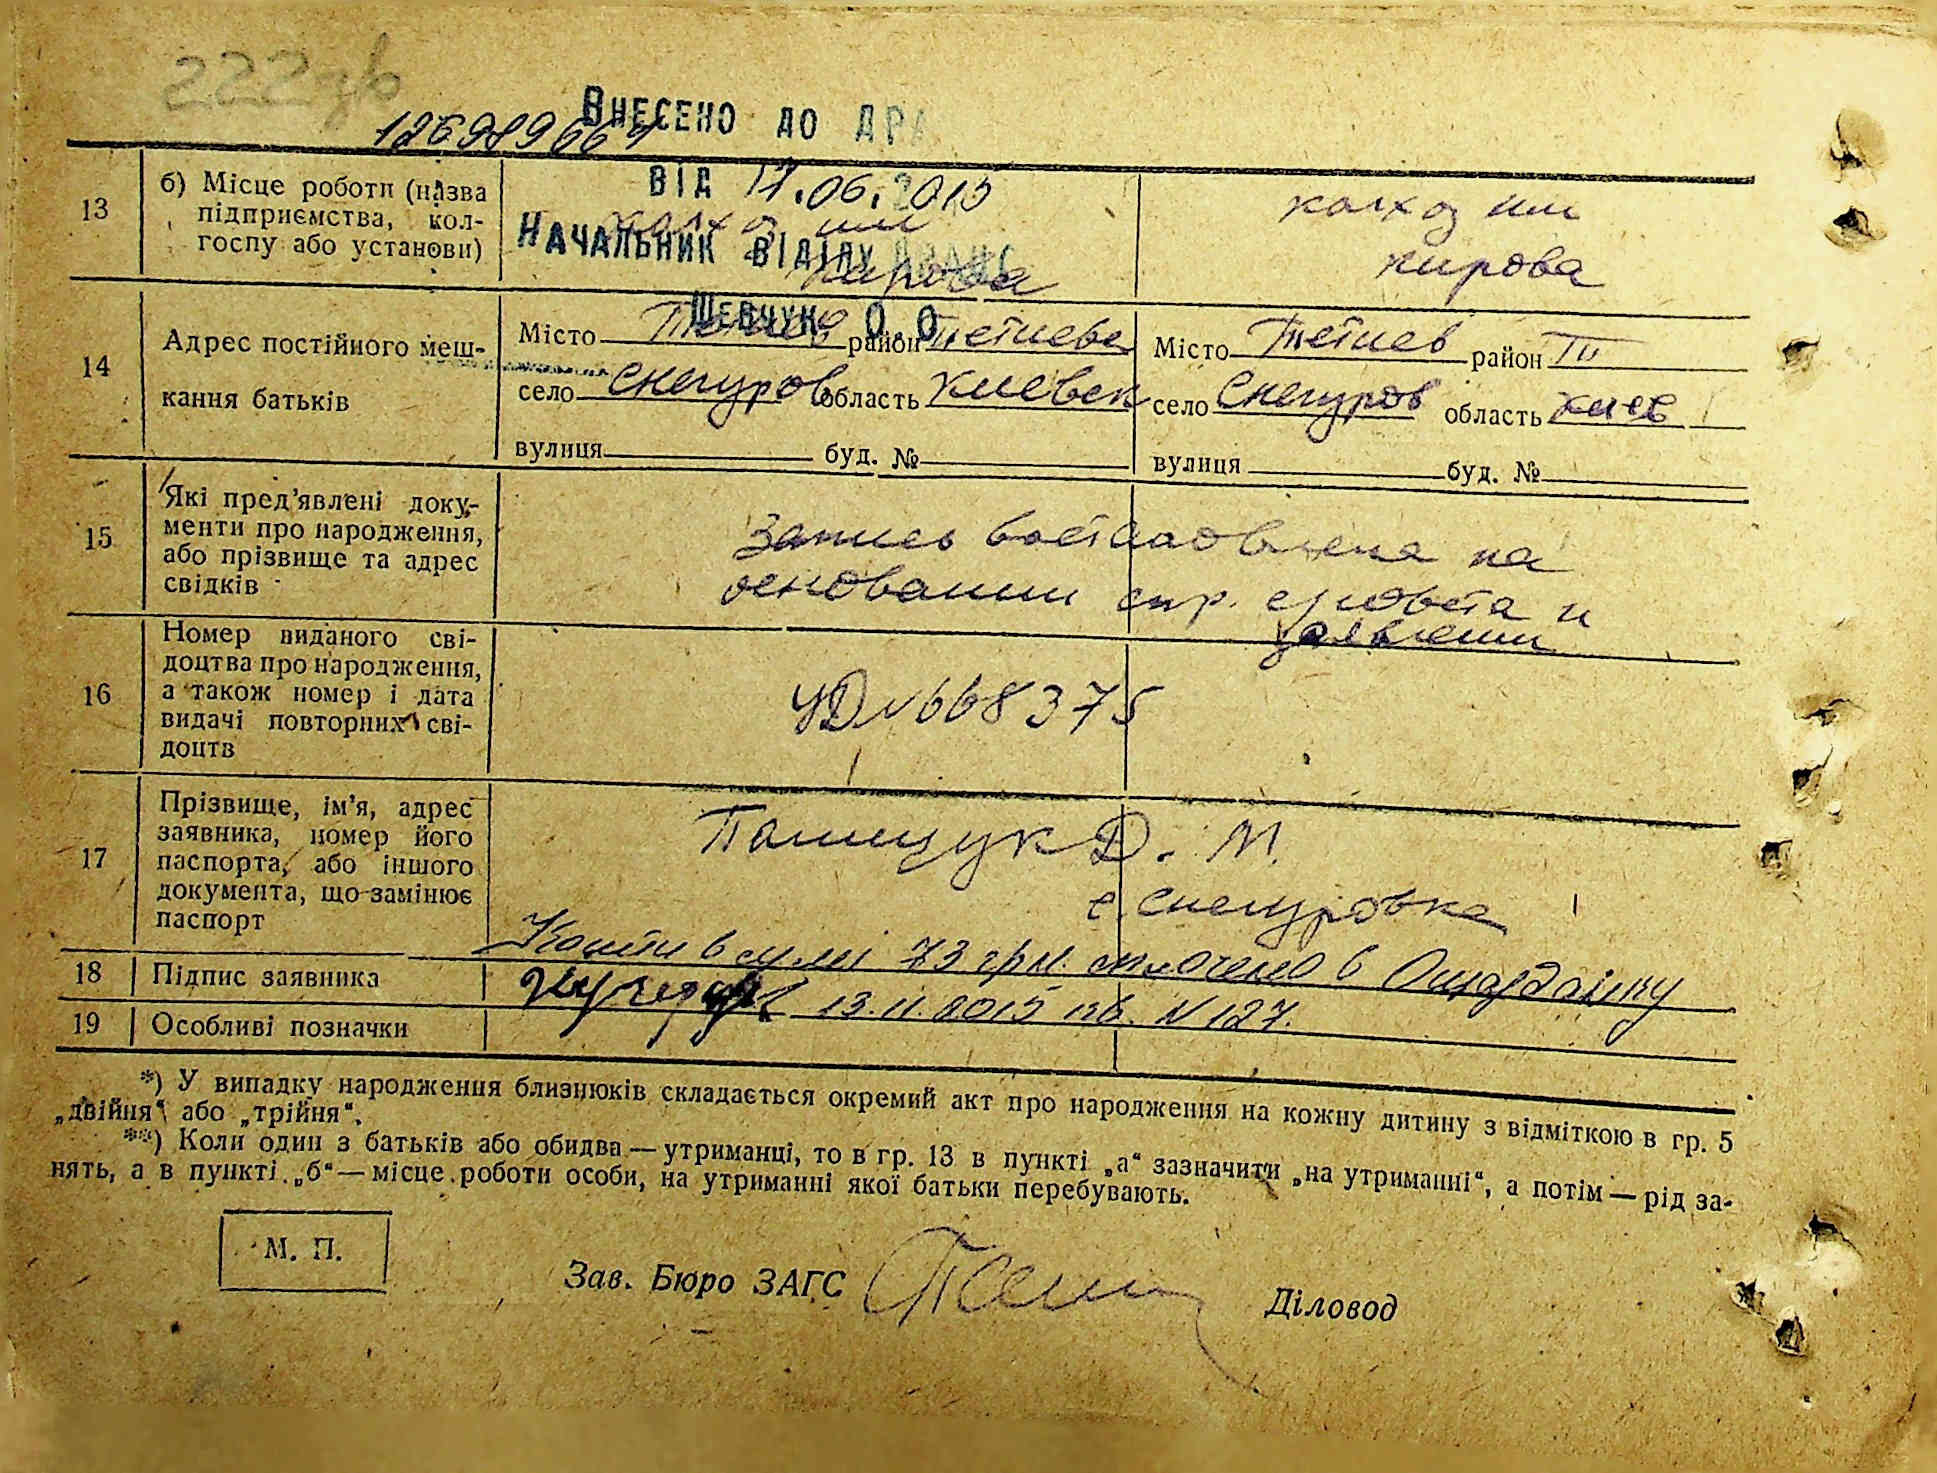 222
126989664
ВНЕСЕНО ДО ДРА
ВІД 17.06.2015
НАЧАЛЬНИК ВІДІЛУ ДРАЦС
ШЕВЧУК О.О
13
б) Місце роботи (назва
підприємства, кол-
госпу або установи)
колхоз им
кирова
колхоз им
кирова
14
Адрес постійного меш-
кання батьків
Місто Тетиев район Тетиевс
село Снегуров область Киевск
вулиця буд. №
Місто Тетиев район Т
село Снегуров область Киев
вулиця буд. №
15
Які пред'явлені доку-
менти про народження,
або прізвище та адрес
свідків
Запись востановлена на
основании спр. с/совета и
заявлении
16
Номер виданого сві-
доцтва про народження,
а також номер і дата
видачі повторних сві-
доцтв
УД № 668375
17
Прізвище, ім'я, адрес
заявника, номер його
паспорта, або іншого
документа, що замінює
паспорт
Полищук Д. М.
с. Снегуровка
Кошти в сумі 73 грн. сплочено в Ощадбанку
18 Підпис заявника
13.11.2015 кв. N 127.
19 Особливі позначки
*) У випадку народження близнюків складається окремий акт про народження на кожну дитину з відміткою в гр. 5
„двійня“ або „трійня“.
**) Коли один з батьків або обидва — утриманці, то в гр. 13 в пункті „а“ зазначити „на утриманні“, а потім — рід за-
нять, а в пункті „б“ — місце роботи особи, на утриманні якої батьки перебувають.
М. П.
Зав. Бюро ЗАГС
Діловод